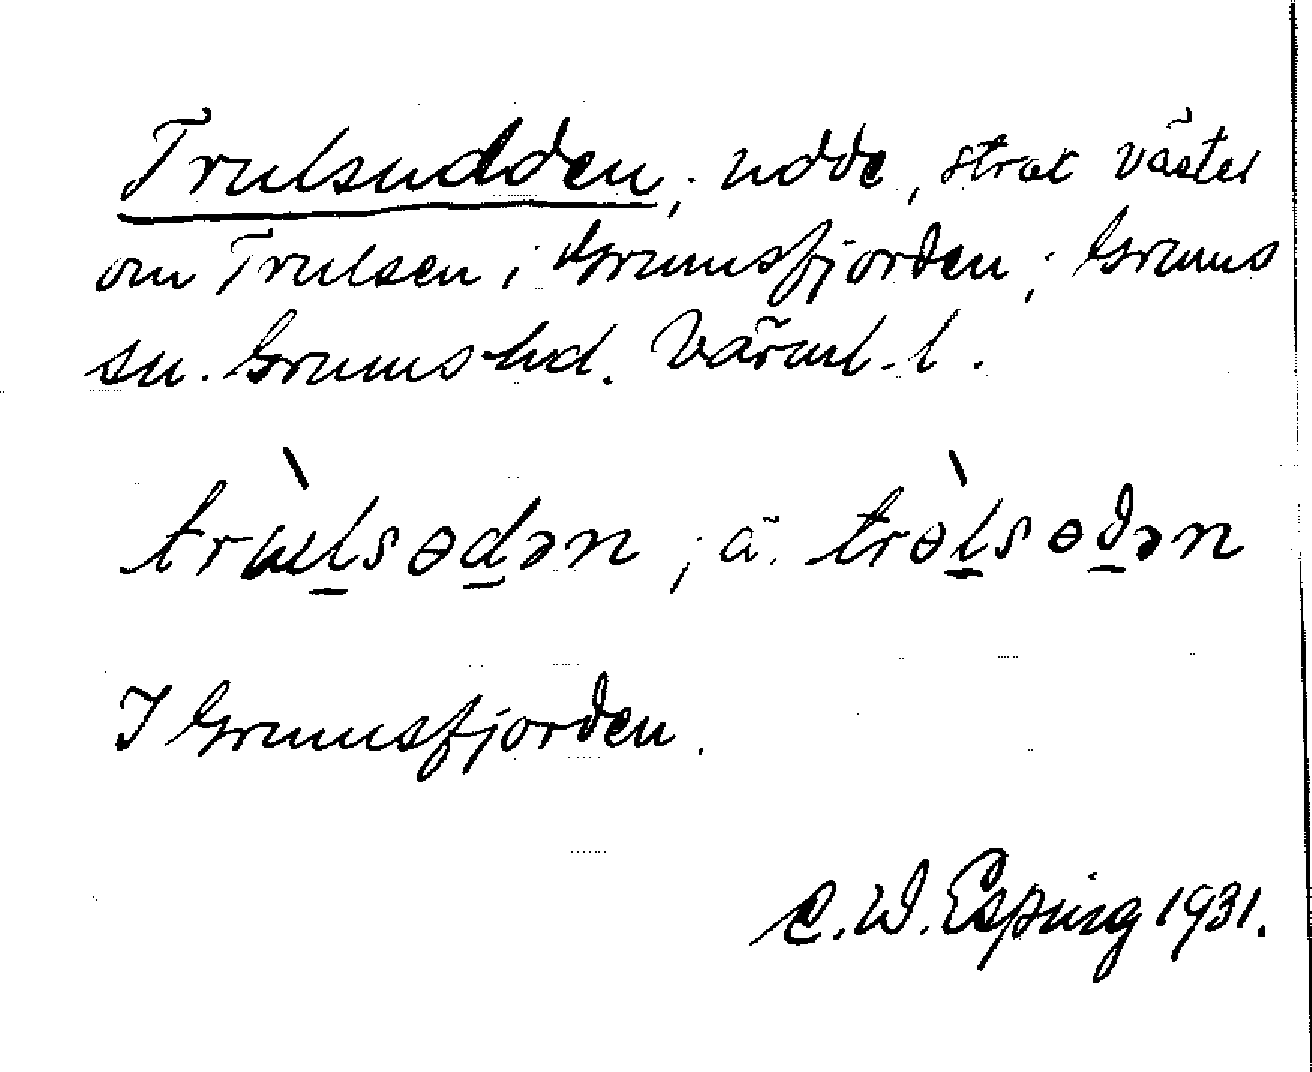 Trulsudden; udde, strax väster
om Trulsen i Grumsfjorden; Grums
sn. Grums hd. Värml. l.
trɯ̀l̲sɵd̲ən; ä. trɵ̀l̲sɵd̲ən
I Grumsfjorden.
C. W. Esping 1931.